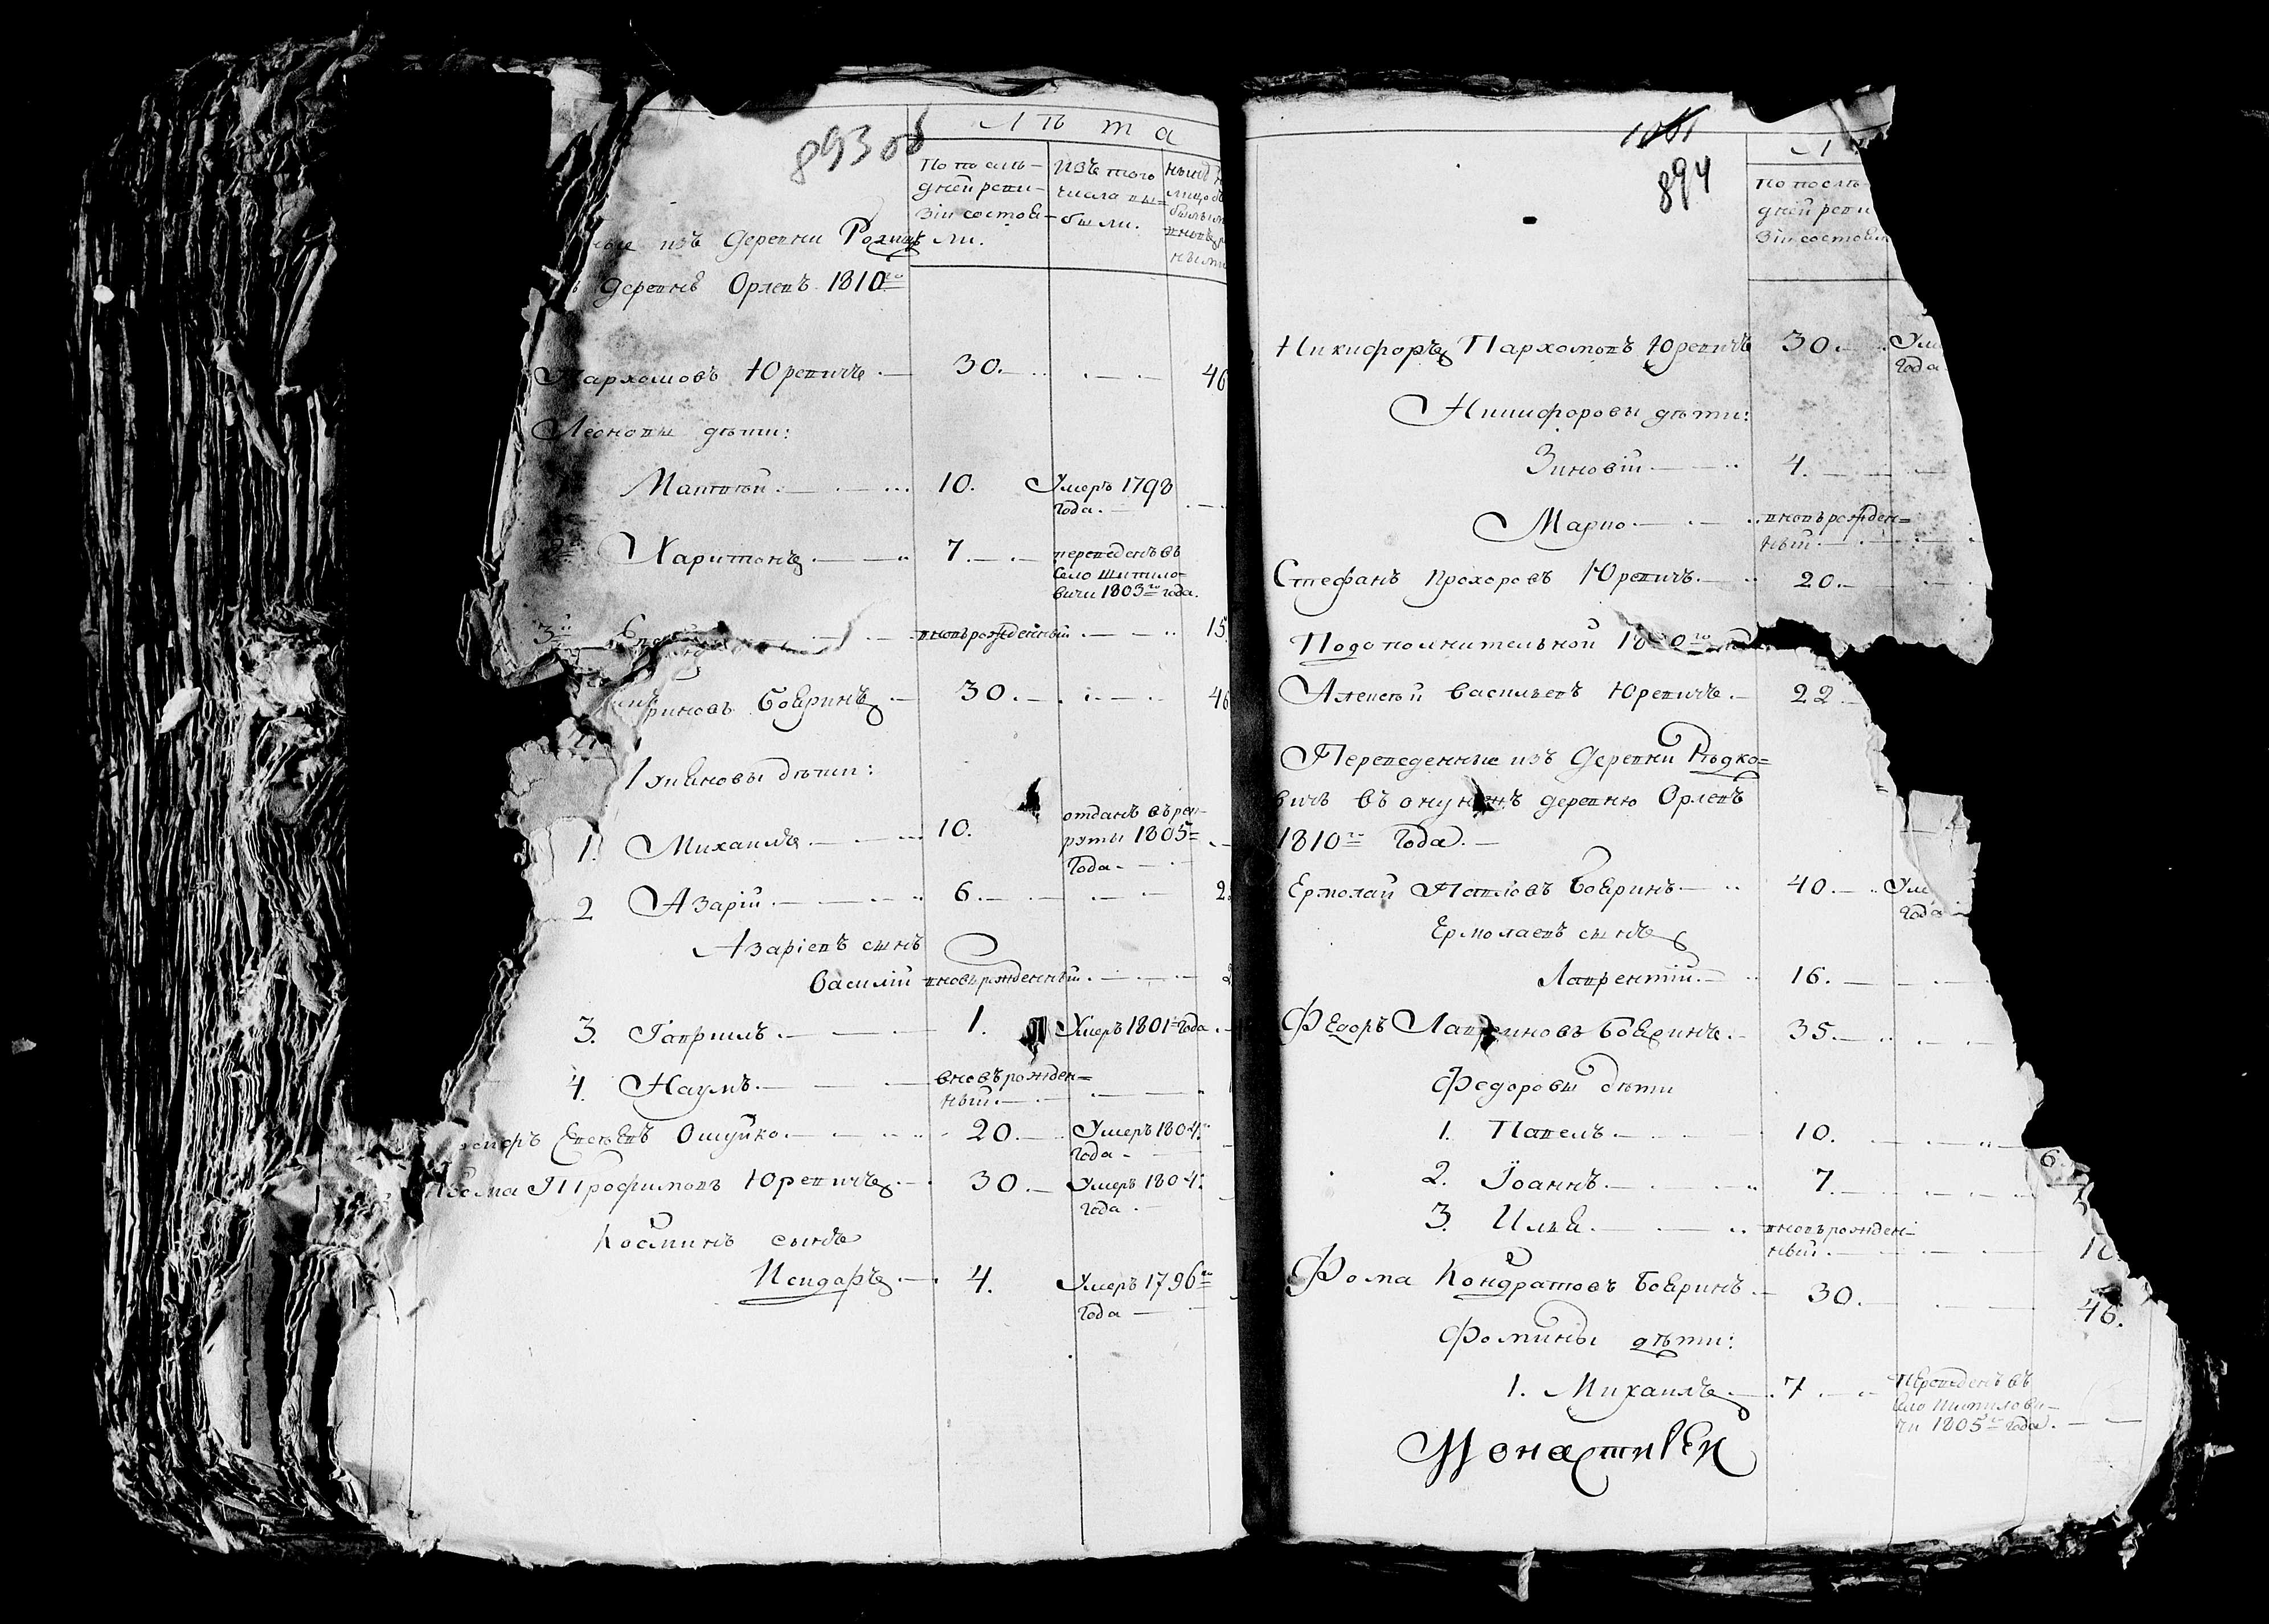 893 об
Лѣта
По послѣ-
дней реви-
зіи состоя-
ли.
Изъ того
числа вы-
были.
изъ деревни
деревнѣ Орлевъ 1810го
Пархомовъ Юревичъ 30. 46
Леоновы дѣти:
Матвѣй 10. Умеръ 1798
года.
Харитонъ 7. переведенъ въ
село Шитило-
вичи 1803го года.
3й вновьрожденный 15.
риновъ Бояринъ 30. 46
дѣти:
1. Михаилъ 10. отданъ въ рек-
руты 1805
года
2 Азарій 6. 2
Азаріевъ сынъ
Василій вновьрожденный
3. Гавриилъ 1. Умеръ 1801 года
4. Наумъ вновьрожден-
ный
Ошуйко 20. Умеръ 1804
года
Трофимовъ Юревичъ 30. Умеръ 1804
года.
Косминъ сынъ
Исидоръ 4. Умеръ 1796го
года
894
По послѣ-
дней реви
зіи состоял
Никифоръ Пархомовъ Юревичъ 30. Уме
года
Никифоровы дѣти:
Зиновій 4.
Марко вновьрожден-
ный
Стефанъ Прохоровъ Юревичъ 20.
Подополнительной
Алексѣй Васильевъ Юревичъ 22
Переведенные изъ деревни Рѣдко-
вичъ въ онуюжъ деревню Орлевъ
1810го года.
Ермолай Павловъ Бояринъ 40. Уме
года
Ермолаевъ сынъ
Лаврентій 16.
Федоръ Бояринъ 35.
Федоровы дѣти
1. Павелъ 10.
2. Іоаннъ 7.
3. Илья вновьрожден-
ный
Фома Кондратовъ Бояринъ 30. 46.
Фомины дѣти:
1. Михаилъ 7 переведенъ въ
село Шитилови-
чи 1805го года.